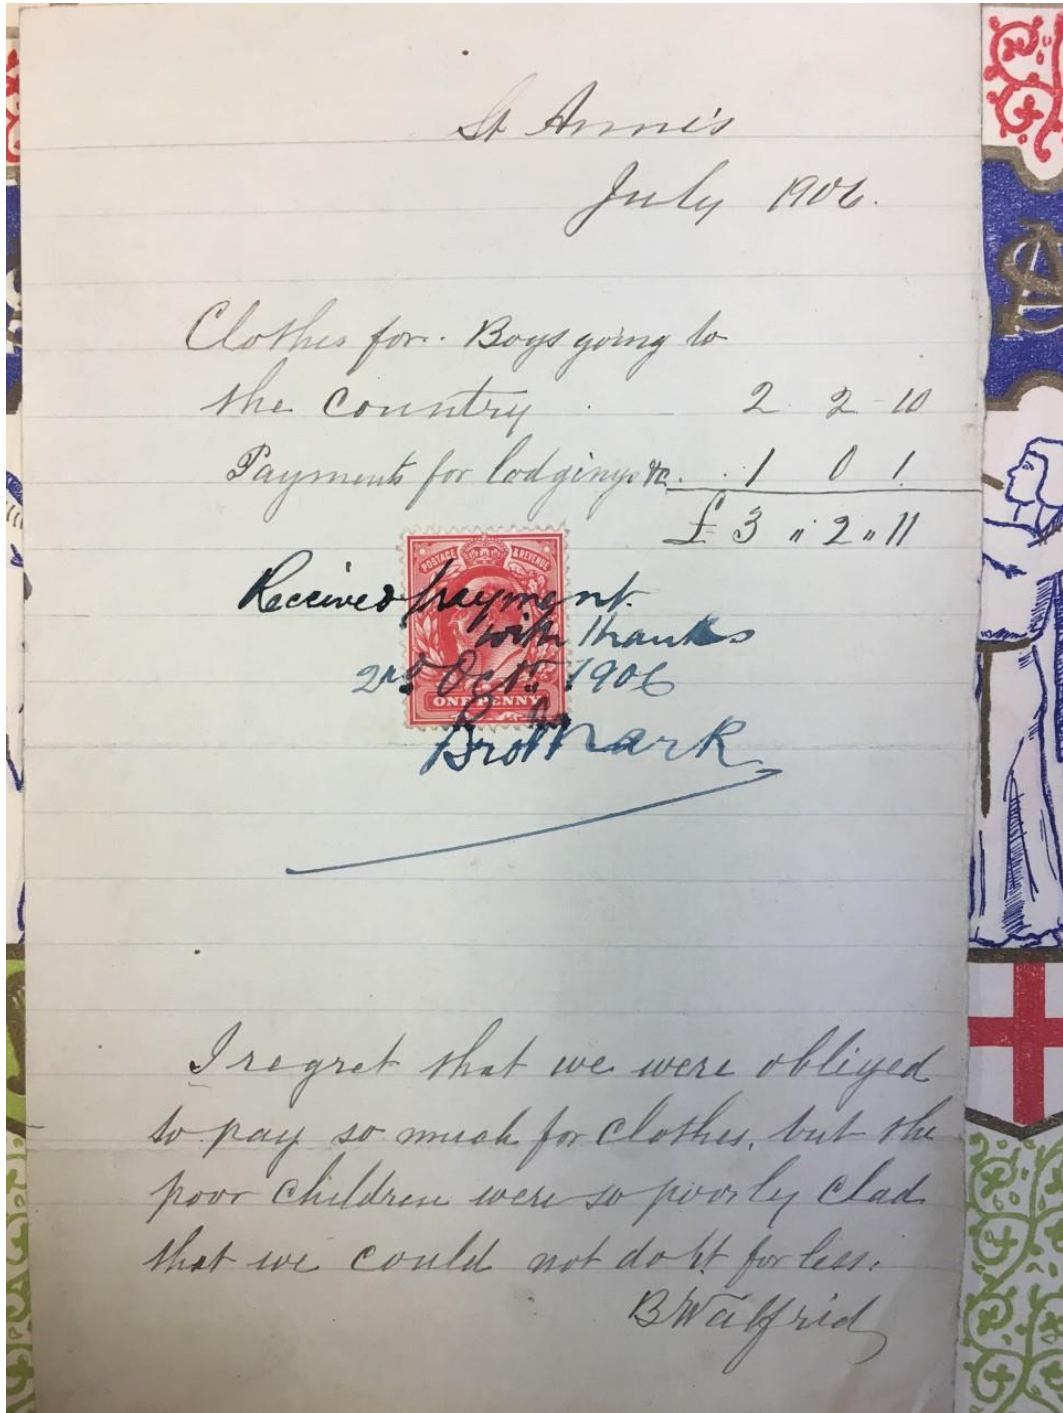 St Anne's
July 1906.
Clothes for. Boys going to
the country . 2 2 10
Payments for lodgings &c. . 1 0 1
£ 3 " 2 " 11
POSTAGE & REVENUE
Received payment
with thanks
2nd Oct. 1906
ONE PENNY
Bro Mark
I regret that we were obliged
to pay so much for clothes, but the
poor children were so poorly clad
that we could not do it for less.
B Walfrid